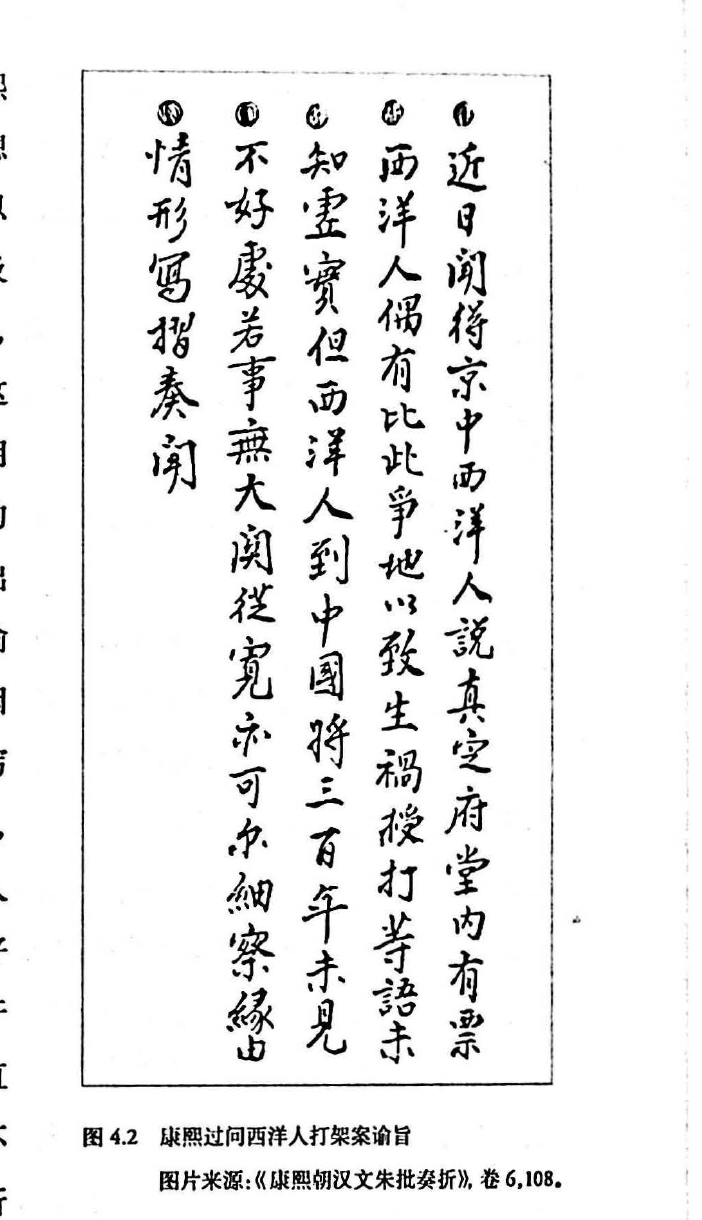 近日聞得京中西洋人說真定府堂內有票
西洋人偶有比此爭地以致生禍授打等語未
知虛實但西洋人到中國將三百年未見
不好處若事無大關從寬亦可尔細察緣由
情形寫摺奏聞
图 4.2 康熙过问西洋人打架案谕旨
图片来源:《康熙朝汉文朱批奏折》,卷 6,108。